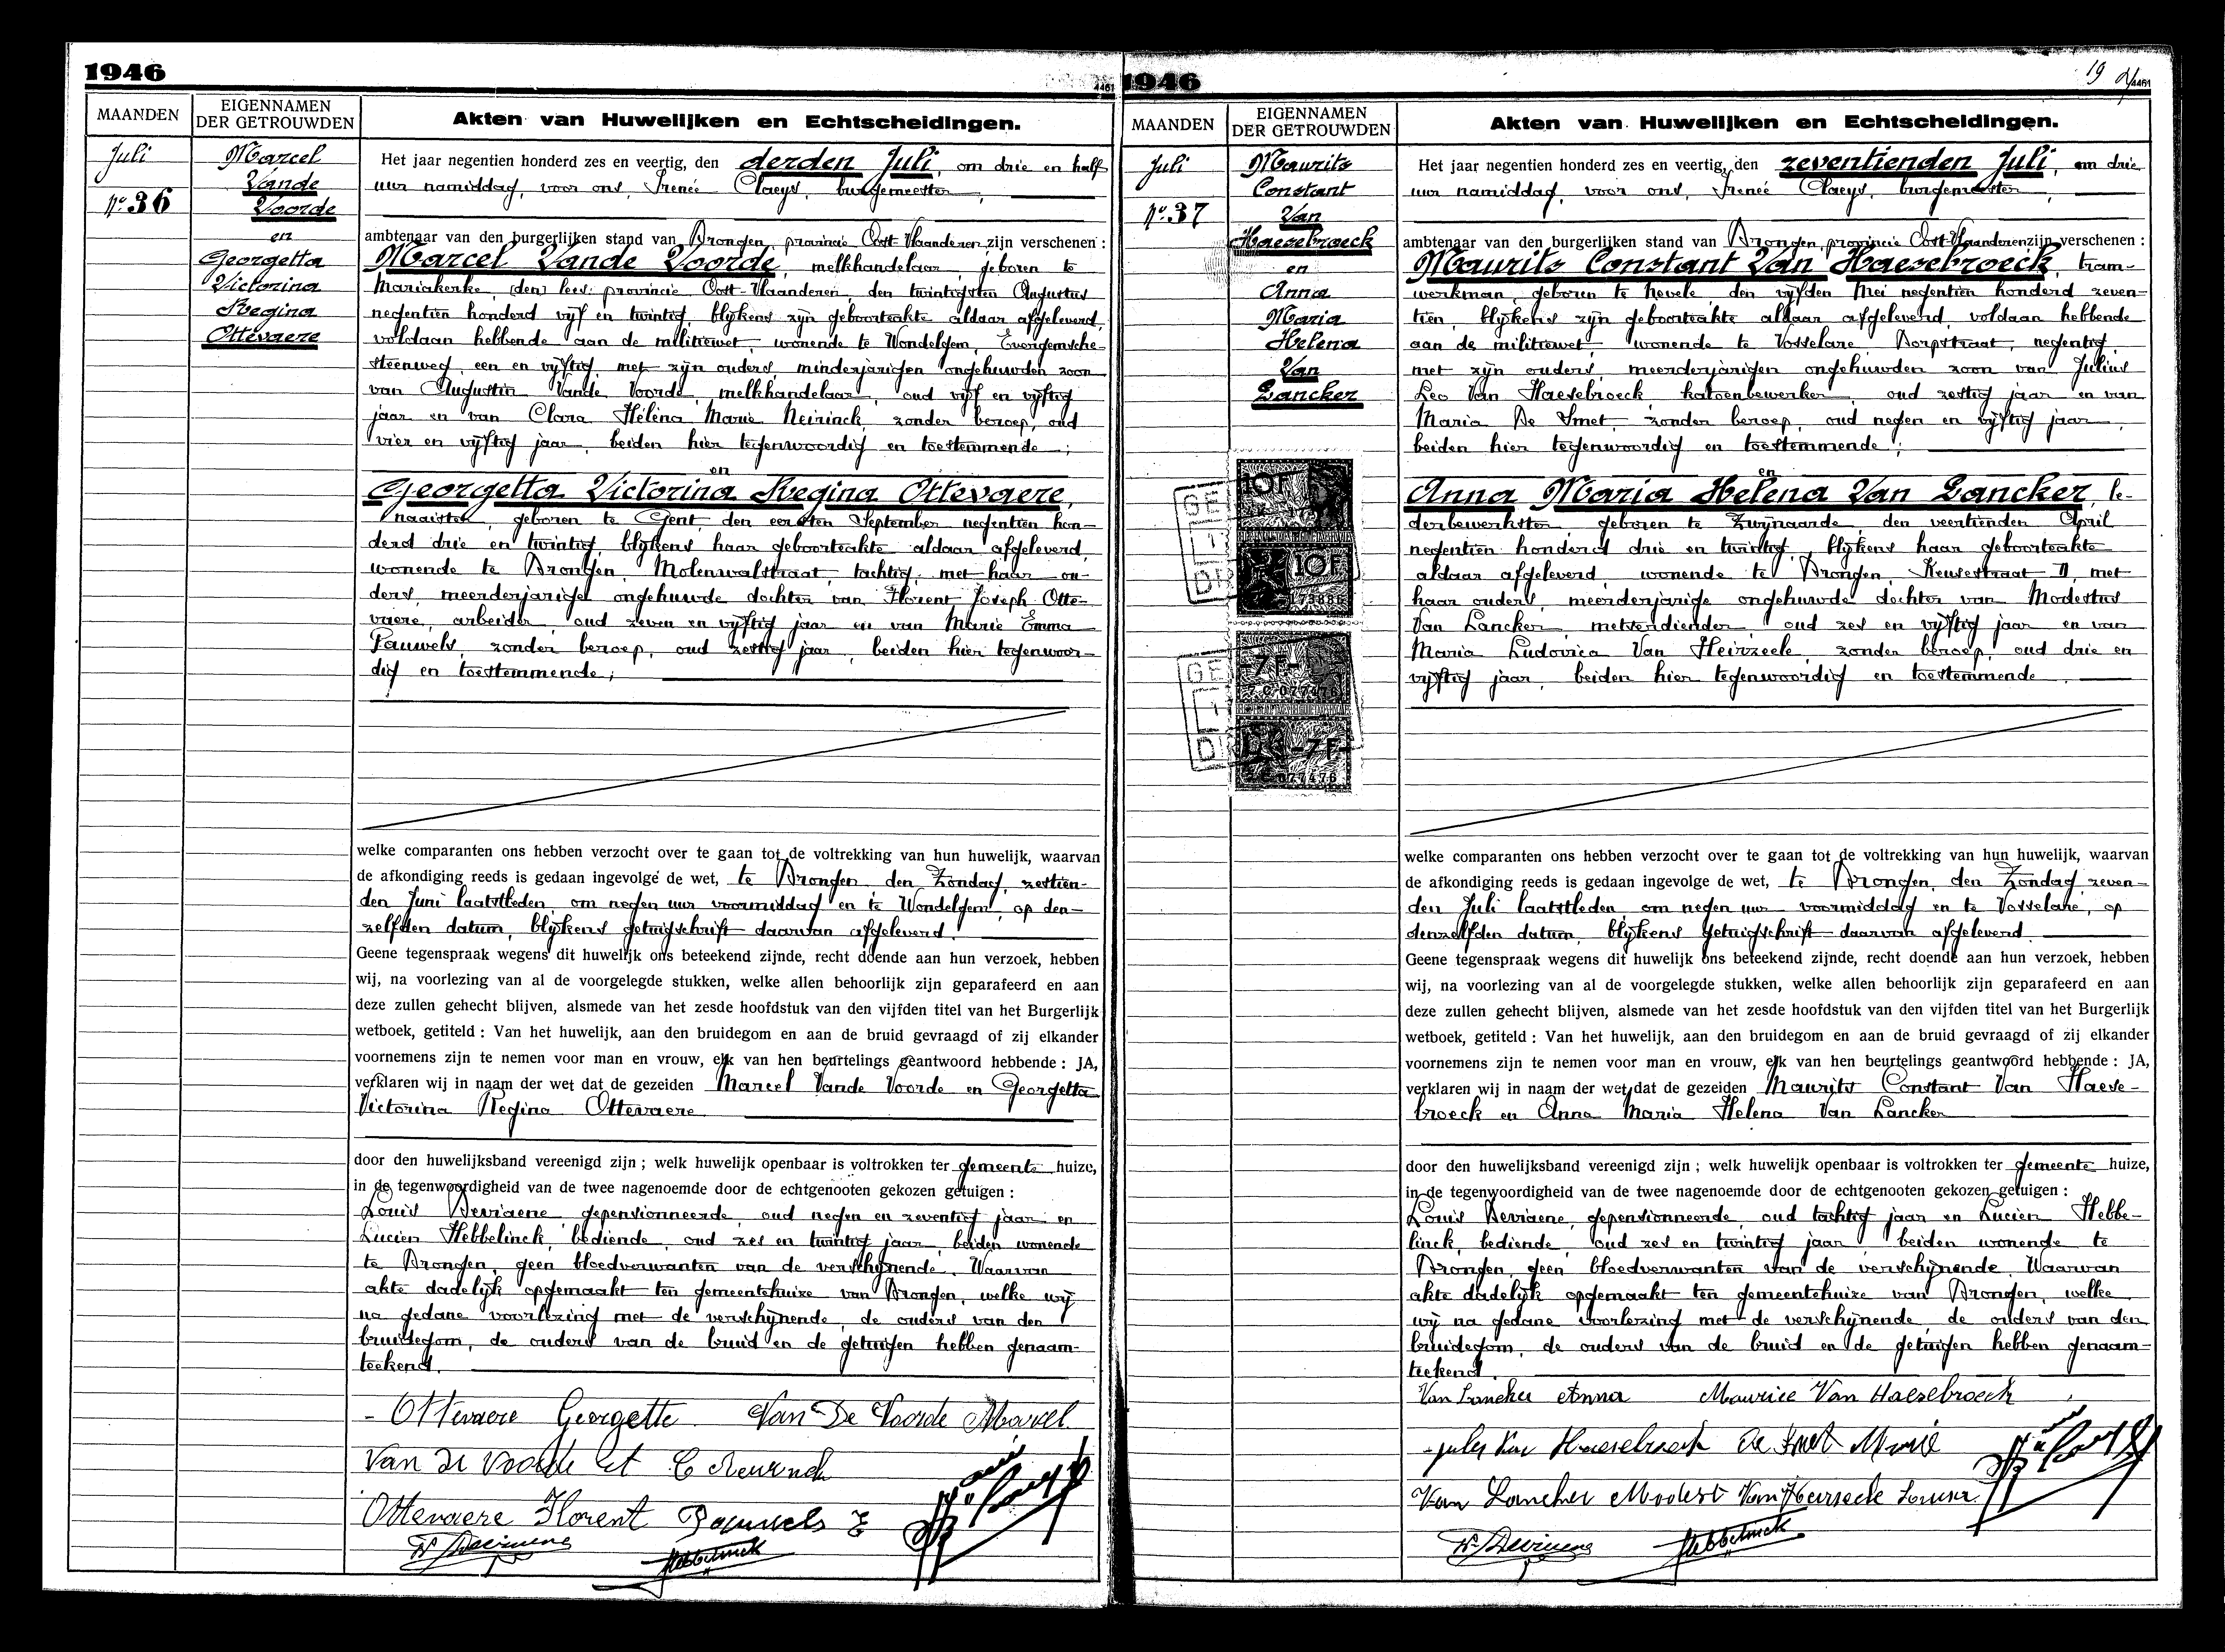 1946
MAANDEN
EIGENNAMEN
DER GETROUWDEN
Akten van Huwelijken en Echtscheidingen.
Juli
No 36
Marcel
Vande
Voorde
en
Georgetta
Victorina
Regina
Ottevaere
Het jaar negentien honderd zes en veertig, den derden Juli, om drie en half
uur namiddag, voor ons, Irené Claeys, burgemeester,
ambtenaar van den burgerlijken stand van Drongen, provincie Oost-Vlaanderen zijn verschenen :
Marcel Vande Voorde, melkhandelaar, geboren te
Mariakerke, (den) lees: provincie Oost-Vlaanderen, den twintigsten Augustus
negentien honderd vijf en twintig, blijkens zijn geboorteakte aldaar afgeleverd,
voldaan hebbende aan de militiewet, wonende te Wondelgem, Evergemsche-
steenweg, een en vijftig, met zijn ouders, minderjarigen ongehuwden zoon
van Augustin Vande Voorde, melkhandelaar, oud vijf en vijftig
jaar en van Clara Héléna Marie Neirinck, zonder beroep, oud
vier en vijftig jaar, beiden hier tegenwoordig en toestemmende ;
en
Georgetta Victorina Regina Ottevaere,
naaister, geboren te Gent, den eersten September negentien hon-
derd drie en twintig, blijkens haar geboorteakte aldaar afgeleverd,
wonende te Drongen, Molenwalstraat, tachtig, met haar ou-
ders, meerderjarige ongehuwde dochter van Florent Joseph Otte-
vaere, arbeider, oud zeven en vijftig jaar en van Marie Emma
Pauwels, zonder beroep, oud zestig jaar, beiden hier tegenwoor-
dig en toestemmende ;
welke comparanten ons hebben verzocht over te gaan tot de voltrekking van hun huwelijk, waarvan
de afkondiging reeds is gedaan ingevolge de wet, te Drongen, den Zondag, zestien-
den Juni laatstleden, om negen uur voormiddag en te Wondelgem, op den-
zelfden datum, blijkens getuigschrift daarvan afgeleverd.
Geene tegenspraak wegens dit huwelijk ons beteekend zijnde, recht doende aan hun verzoek, hebben
wij, na voorlezing van al de voorgelegde stukken, welke allen behoorlijk zijn geparafeerd en aan
deze zullen gehecht blijven, alsmede van het zesde hoofdstuk van den vijfden titel van het Burgerlijk
wetboek, getiteld : Van het huwelijk, aan den bruidegom en aan de bruid gevraagd of zij elkander
voornemens zijn te nemen voor man en vrouw, elk van hen beurtelings geantwoord hebbende : JA,
verklaren wij in naam der wet dat de gezeiden Marcel Vande Voorde en Georgetta
Victorina Regina Ottevaere
door den huwelijksband vereenigd zijn ; welk huwelijk openbaar is voltrokken ter gemeente huize,
in de tegenwoordigheid van de twee nagenoemde door de echtgenooten gekozen getuigen :
Louis Deviaene, gepensionneerde, oud negen en zeventig jaar en
Lucien Hebbelinck, bediende, oud zes en twintig jaar, beiden wonende
te Drongen, geen bloedverwanten van de verschijnende. Waarvan
akte dadelijk opgemaakt ten gemeentehuize van Drongen, welke wij
na gedane voorlezing met de verschijnende, de ouders van den
bruidegom, de ouders van de bruid en de getuigen hebben genaam-
teekend.
- Ottevaere Georgette. Van De Voorde Marcel
Van de Voorde
Ottevaere Florent Pauwels E
Deviaene Hebbelinck
1946
19
4461
MAANDEN
EIGENNAMEN
DER GETROUWDEN
Akten van Huwelijken en Echtscheidingen.
Juli
No 37
Maurits
Constant
Van
Haesebroeck
en
Anna
Maria
Helena
Van
Lancker
10F
10F
-7F-
7 C 077476
-7F-
7 C 077476
Het jaar negentien honderd zes en veertig, den zeventienden Juli, om drie
uur namiddag, voor ons, Irené Claeys, burgemeester,
ambtenaar van den burgerlijken stand van Drongen, provincie Oost-Vlaanderen zijn verschenen :
Maurits Constant Van Haesebroeck, tram-
werkman, geboren te Nevele, den vijfden Mei negentien honderd zeven-
tien, blijkens zijn geboorteakte aldaar afgeleverd, voldaan hebbende
aan de militiewet, wonende te Vosselare, Dorpstraat, negentig,
met zijn ouders, meerderjarigen ongehuwden zoon van Julius
Leo Van Haesebroeck, katoenbewerker, oud zestig jaar en van
Maria De Smet, zonder beroep, oud negen en vijftig jaar,
beiden hier tegenwoordig en toestemmende ;
en
Anna Maria Helena Van Lancker, le-
derbewerkster, geboren te Zwijnaarde, den veertienden April
negentien honderd drie en twintig, blijkens haar geboorteakte
aldaar afgeleverd, wonende te Drongen, Keusestraat 11, met
haar ouders, meerderjarige ongehuwde dochter van Modestus
Van Lancker, metserdiender, oud zes en vijftig jaar en van
Maria Ludovica Van Heirzeele, zonder beroep, oud drie en
vijftig jaar, beiden hier tegenwoordig en toestemmende.
welke comparanten ons hebben verzocht over te gaan tot de voltrekking van hun huwelijk, waarvan
de afkondiging reeds is gedaan ingevolge de wet, te Drongen, den Zondag, zeven-
den Juli laatstleden, om negen uur voormiddag en te Vosselare, op
denzelfden datum, blijkens getuigschrift daarvan afgeleverd.
Geene tegenspraak wegens dit huwelijk ons beteekend zijnde, recht doende aan hun verzoek, hebben
wij, na voorlezing van al de voorgelegde stukken, welke allen behoorlijk zijn geparafeerd en aan
deze zullen gehecht blijven, alsmede van het zesde hoofdstuk van den vijfden titel van het Burgerlijk
wetboek, getiteld : Van het huwelijk, aan den bruidegom en aan de bruid gevraagd of zij elkander
voornemens zijn te nemen voor man en vrouw, elk van hen beurtelings geantwoord hebbende : JA,
verklaren wij in naam der wet dat de gezeiden Maurits Constant Van Haese-
broeck en Anna Maria Helena Van Lancker
door den huwelijksband vereenigd zijn ; welk huwelijk openbaar is voltrokken ter gemeente huize,
in de tegenwoordigheid van de twee nagenoemde door de echtgenooten gekozen getuigen :
Louis Deviaene, gepensionneerde, oud tachtig jaar en Lucien Hebbe-
linck, bediende, oud zes en twintig jaar, beiden wonende te
Drongen, geen bloedverwanten van de verschijnende. Waarvan
akte dadelijk opgemaakt ten gemeentehuize van Drongen, welke
wij na gedane voorlezing met de verschijnende, de ouders van den
bruidegom, de ouders van de bruid en de getuigen hebben genaam-
teekend.
Van Lancker Anna Maurice Van Haesebroeck
Jules Van Haesebroeck De Smet Marie
Van Lancker Modest Van Heirseele Louisa
Deviaene Hebbelinck